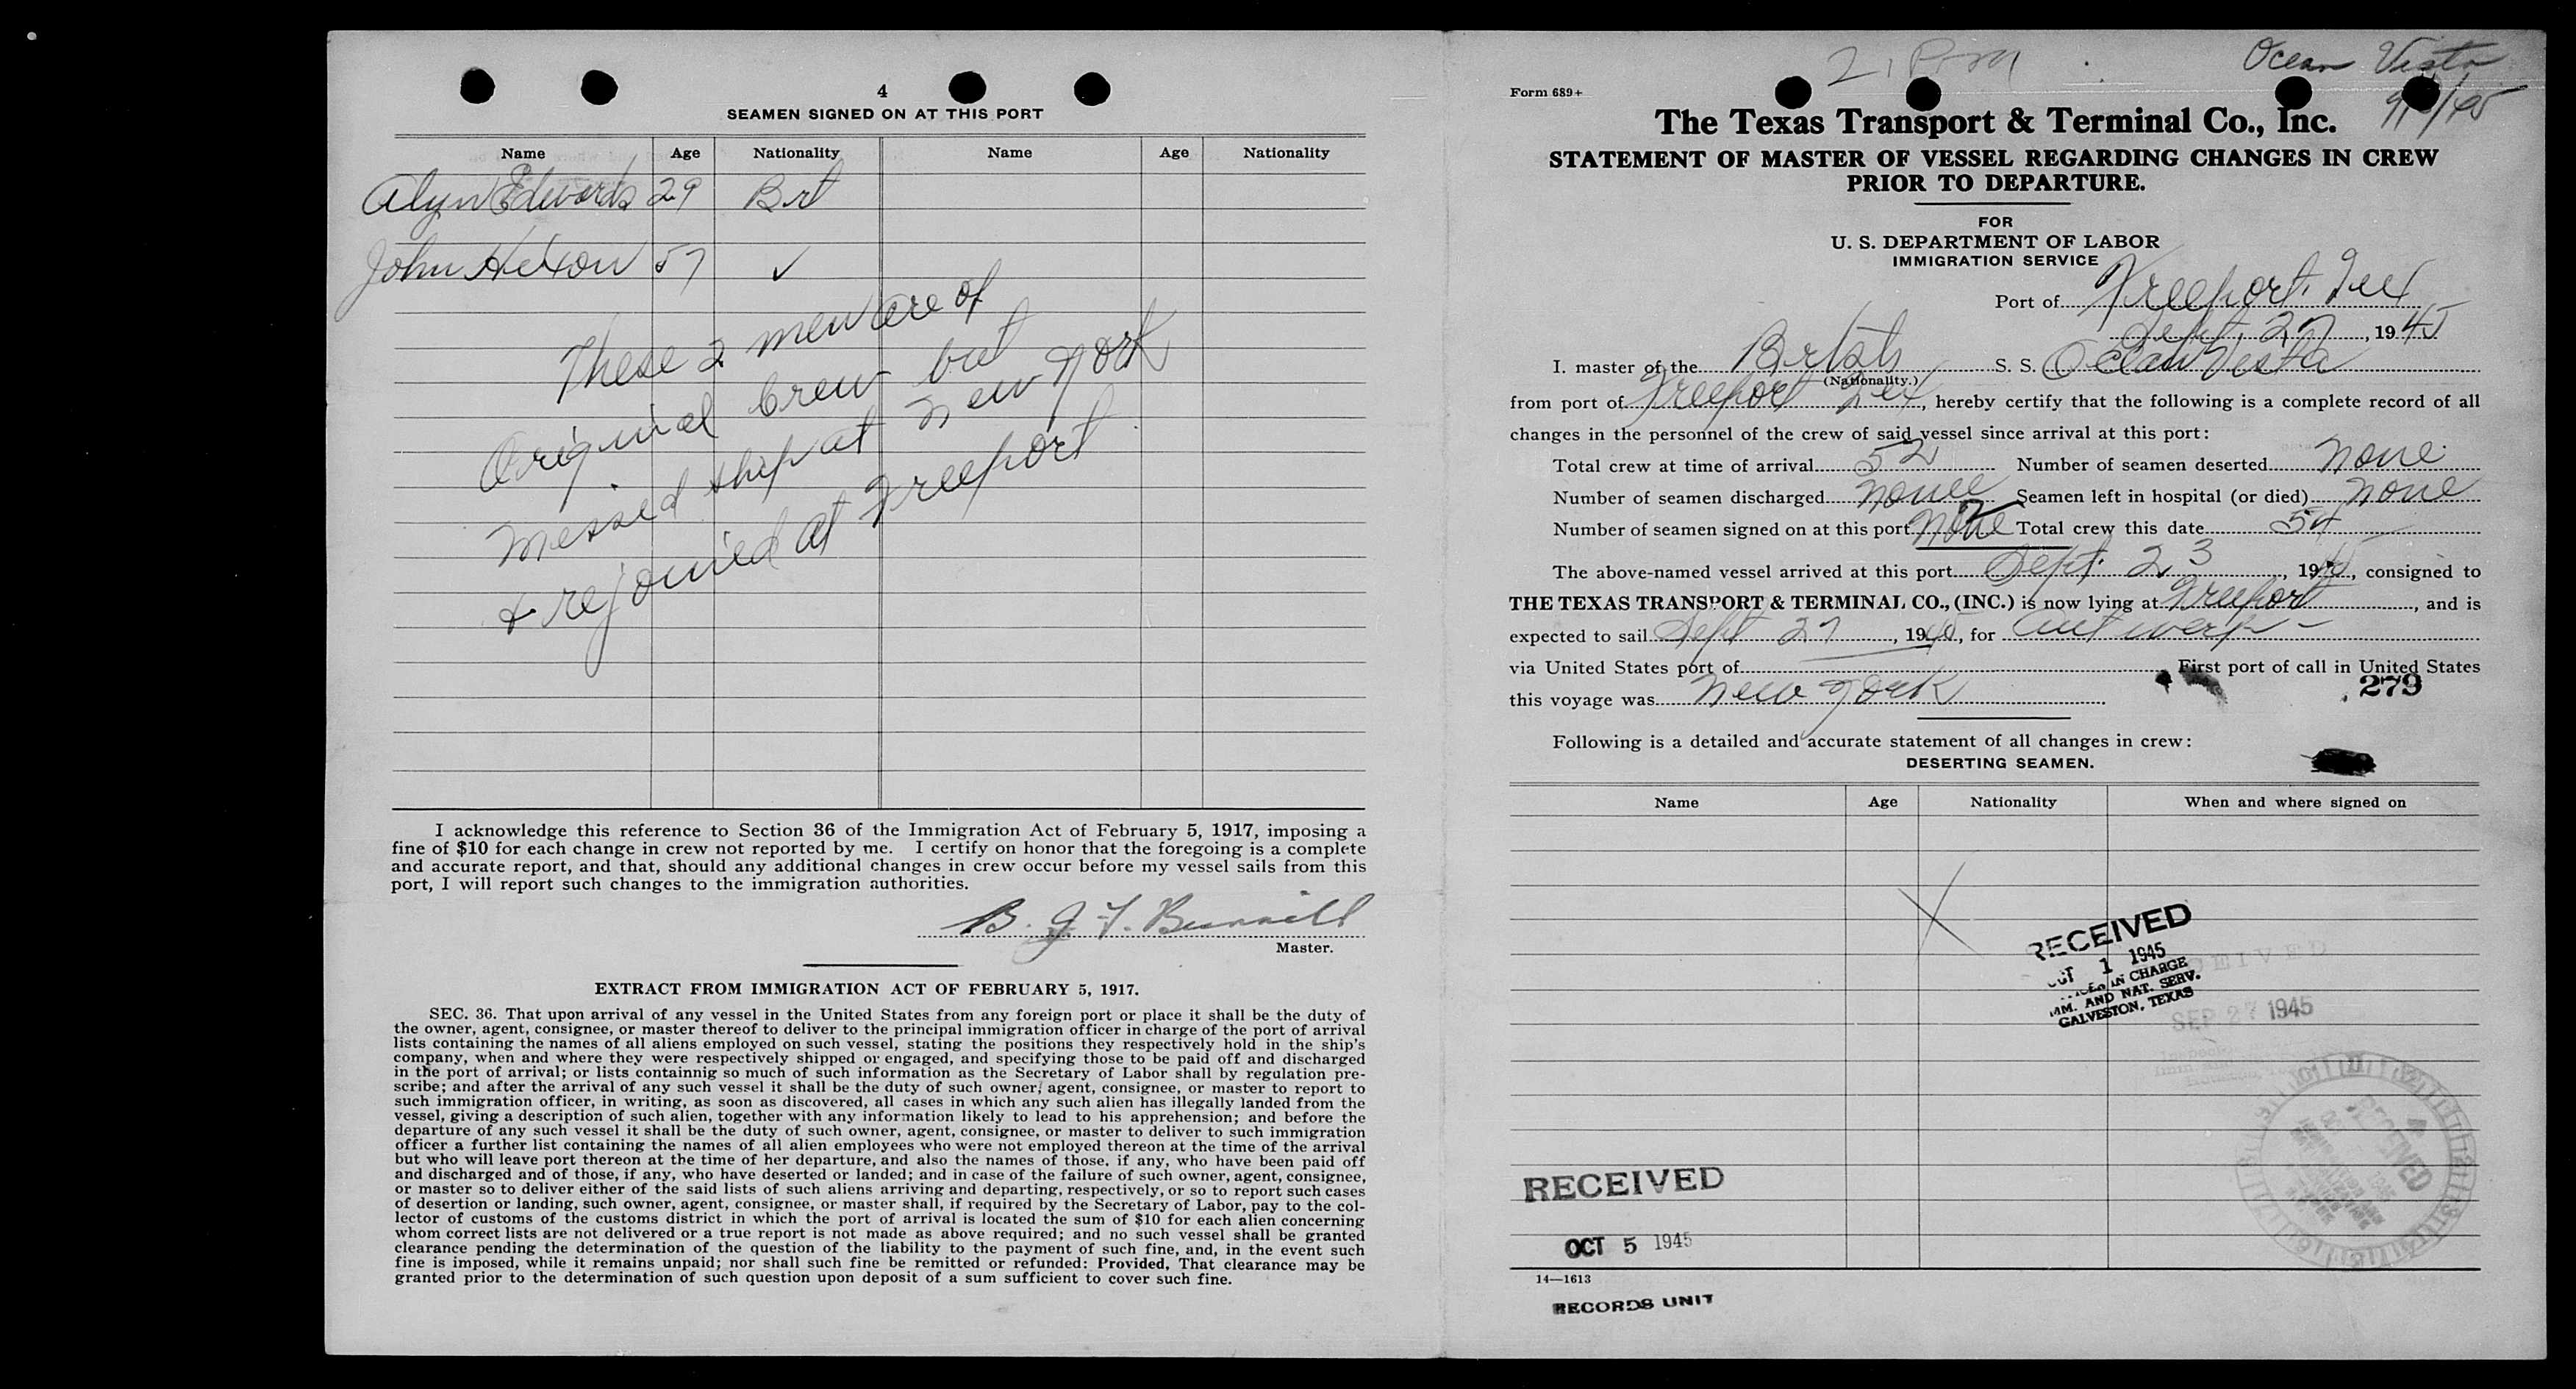 4
SEAMEN SIGNED ON AT THIS PORT
Name Age Nationality Name Age Nationality
Alyn Edwards 29 Brt
John Hixon 57 ✓
These 2 men are of
Original Crew but
messed ship at New York
& rejoined at Freeport
I acknowledge this reference to Section 36 of the Immigration Act of February 5, 1917, imposing a
fine of $10 for each change in crew not reported by me. I certify on honor that the foregoing is a complete
and accurate report, and that, should any additional changes in crew occur before my vessel sails from this
port, I will report such changes to the immigration authorities.
B. J. F.
Master.
EXTRACT FROM IMMIGRATION ACT OF FEBRUARY 5, 1917.
SEC. 36. That upon arrival of any vessel in the United States from any foreign port or place it shall be the duty of
the owner, agent, consignee, or master thereof to deliver to the principal immigration officer in charge of the port of arrival
lists containing the names of all aliens employed on such vessel, stating the positions they respectively hold in the ship's
company, when and where they were respectively shipped or engaged, and specifying those to be paid off and discharged
in the port of arrival; or lists containnig so much of such information as the Secretary of Labor shall by regulation pre-
scribe; and after the arrival of any such vessel it shall be the duty of such owner, agent, consignee, or master to report to
such immigration officer, in writing, as soon as discovered, all cases in which any such alien has illegally landed from the
vessel, giving a description of such alien, together with any information likely to lead to his apprehension; and before the
departure of any such vessel it shall be the duty of such owner, agent, consignee, or master to deliver to such immigration
officer a further list containing the names of all alien employees who were not employed thereon at the time of the arrival
but who will leave port thereon at the time of her departure, and also the names of those, if any, who have been paid off
and discharged and of those, if any, who have deserted or landed; and in case of the failure of such owner, agent, consignee,
or master so to deliver either of the said lists of such aliens arriving and departing, respectively, or so to report such cases
of desertion or landing, such owner, agent, consignee, or master shall, if required by the Secretary of Labor, pay to the col-
lector of customs of the customs district in which the port of arrival is located the sum of $10 for each alien concerning
whom correct lists are not delivered or a true report is not made as above required; and no such vessel shall be granted
clearance pending the determination of the question of the liability to the payment of such fine, and, in the event such
fine is imposed, while it remains unpaid; nor shall such fine be remitted or refunded: Provided, That clearance may be
granted prior to the determination of such question upon deposit of a sum sufficient to cover such fine.
2 P.M
Ocean Vista
Form 689+
The Texas Transport & Terminal Co., Inc.
STATEMENT OF MASTER OF VESSEL REGARDING CHANGES IN CREW
PRIOR TO DEPARTURE.
FOR
U. S. DEPARTMENT OF LABOR
IMMIGRATION SERVICE
Port of Freeport, Tex
Sept. 27, 1945
I. master of the British S. S. Ocean Vista
(Nationality.)
from port of Freeport Tex, hereby certify that the following is a complete record of all
changes in the personnel of the crew of said vessel since arrival at this port:
Total crew at time of arrival 52 Number of seamen deserted none
Number of seamen discharged none Seamen left in hospital (or died) none
Number of seamen signed on at this port none 2 Total crew this date 54
The above-named vessel arrived at this port Sept. 23, 1945, consigned to
THE TEXAS TRANSPORT & TERMINAL CO., (INC.) is now lying at Freeport, and is
expected to sail Sept 27, 1945, for Antwerp-
via United States port of First port of call in United States
this voyage was New York
279
Following is a detailed and accurate statement of all changes in crew:
DESERTING SEAMEN.
Name Age Nationality When and where signed on
RECEIVED
OCT 1 1945
IN CHARGE
IMM. AND NAT. SERV.
GALVESTON, TEXAS
RECEIVED
SEP 27 1945
RECEIVED
RECEIVED
OCT 5 1945
14—1613
RECORDS UNIT